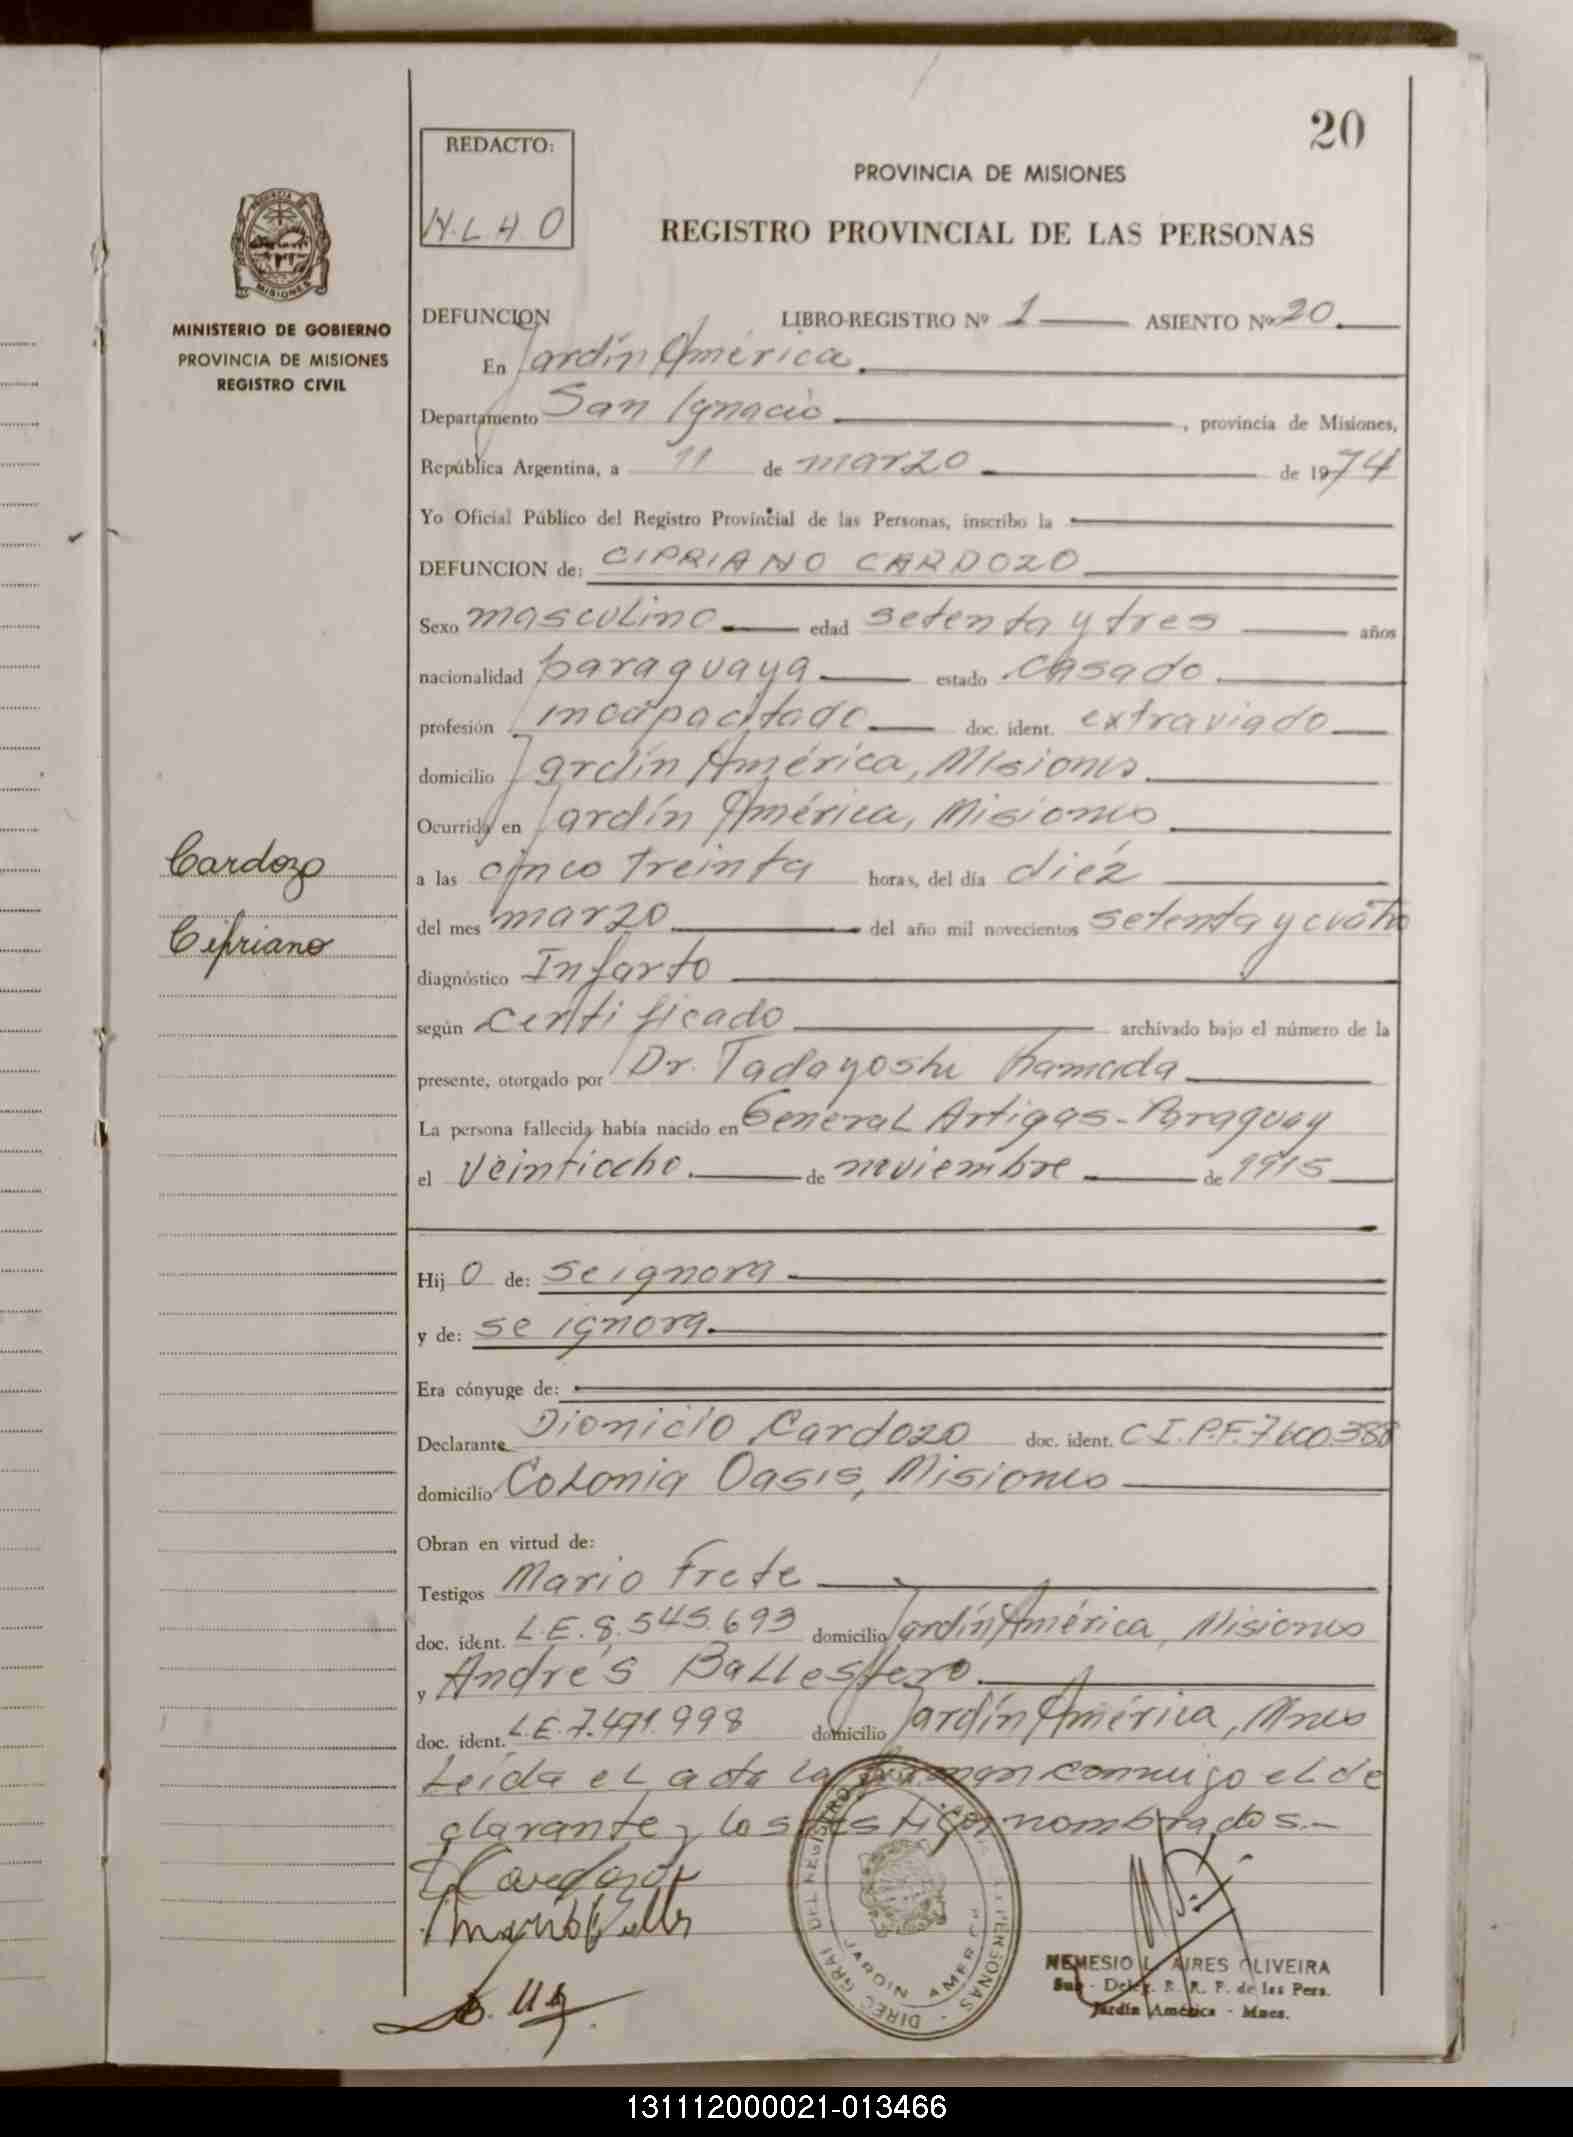 20
REDACTO:
N.L.A.O
PROVINCIA DE MISIONES
REGISTRO PROVINCIAL DE LAS PERSONAS
MISIONES
MINISTERIO DE GOBIERNO
PROVINCIA DE MISIONES
REGISTRO CIVIL
Cardozo
Cipriano
DEFUNCION LIBRO-REGISTRO Nº 1 ASIENTO Nº 20.
En Jardín América.
Departamento San Ignacio, provincia de Misiones,
República Argentina, a 11 de marzo de 1974
Yo Oficial Público del Registro Provincial de las Personas, inscribo la
DEFUNCION de: CIPRIANO CARDOZO
Sexo masculino edad setenta y tres años
nacionalidad paraguaya estado casado
profesión incapacitado doc. ident. extraviado
domicilio Jardín América, Misiones
Ocurrida en Jardín América, Misiones
a las cinco treinta horas, del día diez
del mes marzo del año mil novecientos setenta y cuatro
diagnóstico Infarto
según certificado archivado bajo el número de la
presente, otorgado por Dr. Tadayoshi Kamada
La persona fallecida había nacido en General Artigas - Paraguay
el veintiocho. de noviembre de 1915
Hij o de: se ignora
y de: se ignora.
Era cónyuge de:
Declarante Dionicio Cardozo doc. ident. C.I.P.F. 7600.388
domicilio Colonia Oasis, Misiones
Obran en virtud de:
Testigos Mario Frete
doc. ident. L.E. 8.545.693 domicilio Jardín América, Misiones
y Andrés Ballestero.
doc. ident. L.E. 7.471.998 domicilio Jardín América, Mnes
Leída el acta la firman conmigo el de
clarante y los testigos nombrados.-
NEMESIO L. AIRES OLIVEIRA
Sub - Deleg. R. R. P. de las Pers.
Jardín América - Mnes.
131112000021-013466